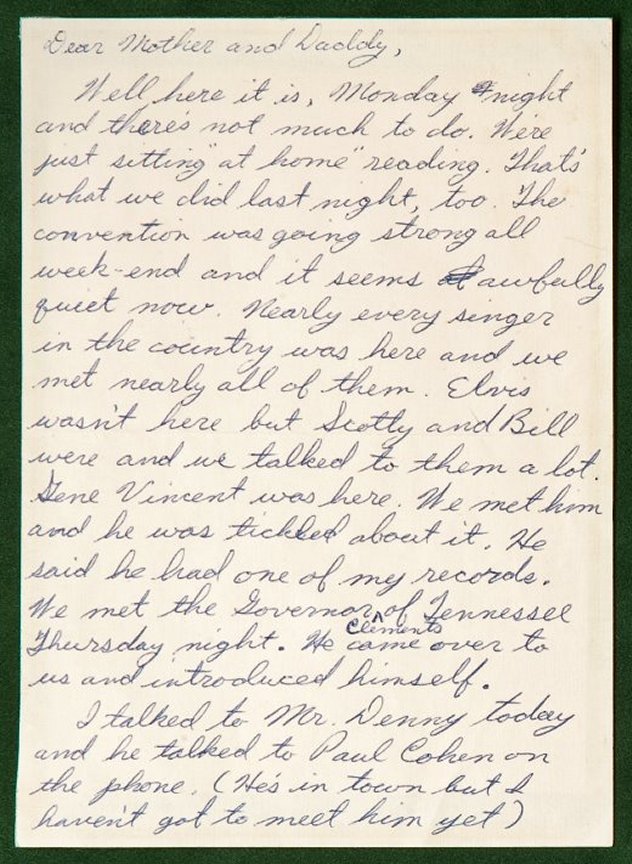 Dear Mother and Daddy,
Well here it is, Monday night
and there's not much to do. We're
just sitting "at home" reading. That's
what we did last night, too. The
convention was going strong all
week-end and it seems awfully
quiet now. Nearly every singer
in the country was here and we
met nearly all of them. Elvis
wasn't here but Scotty and Bill
were and we talked to them a lot.
Gene Vincent was here. We met him
and he was tickled about it. He
said he had one of my records.
We met the Governor ^ of Tennessee
Clements
Thursday night. He came over to
us and introduced himself.
I talked to Mr. Denny today
and he talked to Paul Cohen on
the phone. (He's in town but I
haven't got to meet him yet)